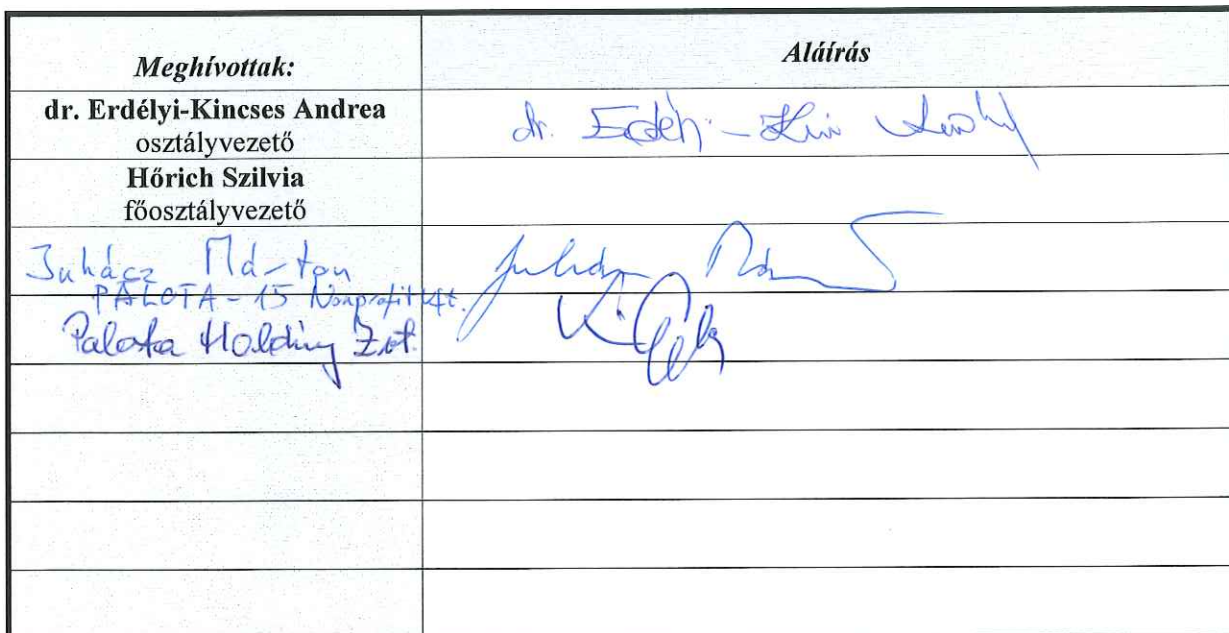 Meghívottak:
Aláírás
dr. Erdélyi-Kincses Andrea
osztályvezető
dr. Erdélyi-Kin
Hőrich Szilvia
főosztályvezető
Juhácz Márton
PALOTA-15 Nonprofit Kft.
Palota Holding Zrt.